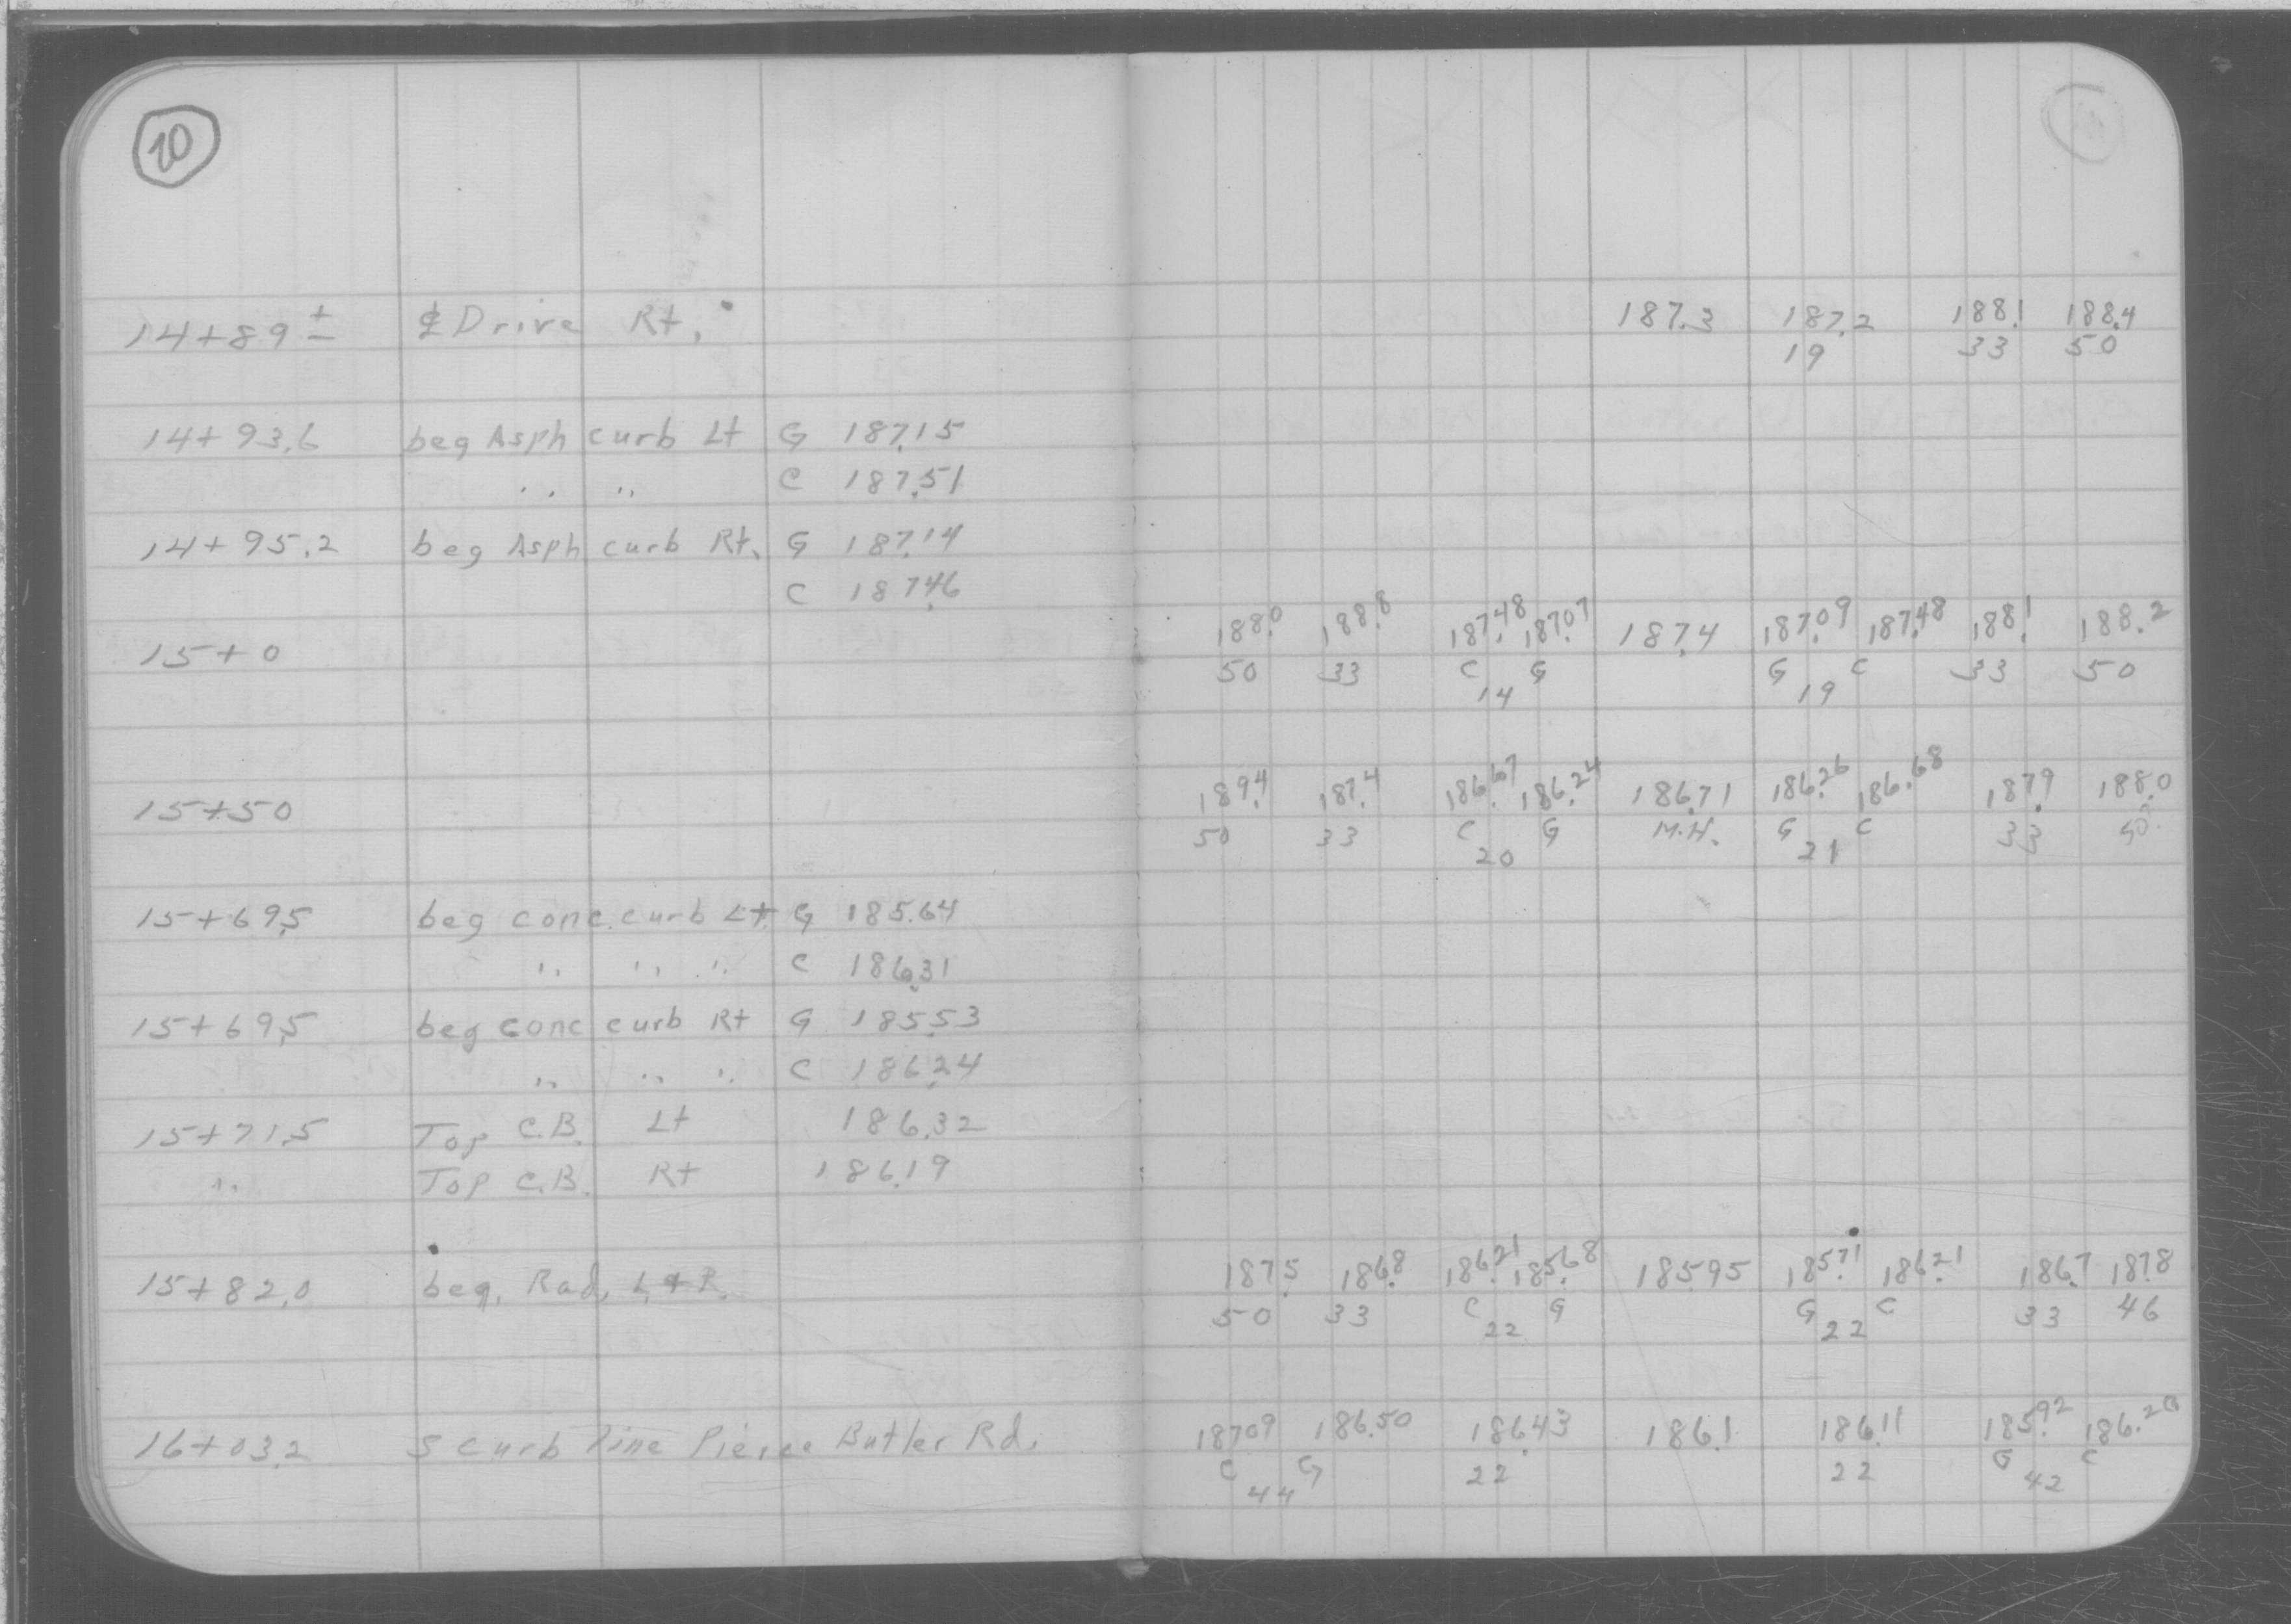 20
14+89 ± ℄ Drive Rt. 187.3 187.2 188.1 188.4
19 33 50
14+93.6 beg Asph curb Lt G 187.15
" " C 187.51
14+95.2 beg Asph curb Rt. G 187.14
C 187.46
15+0 188.0 188.8 187.48 187.07 187.4 187.09 187.48 188.1 188.2
50 33 C G G C 33 50
14 19
15+50 189.4 187.4 186.67 186.24 186.71 186.26 186.68 187.9 188.0
50 33 C G M.H. G C 33 50
20 21
15+69.5 beg conc. curb Lt. G 185.64
" " " C 186.31
15+69.5 beg conc curb Rt G 185.53
" " " C 186.24
15+71.5 Top C.B. Lt 186.32
" Top C.B. Rt 186.19
15+82.0 beg. Rad. L & R. 187.5 186.8 186.21 185.68 185.95 185.71 186.21 186.7 187.8
50 33 C G G C 33 46
22 22
16+03.2 S curb line Pierce Butler Rd. 187.09 186.50 186.43 186.1 186.11 185.92
C G 22 22 G C
44 42